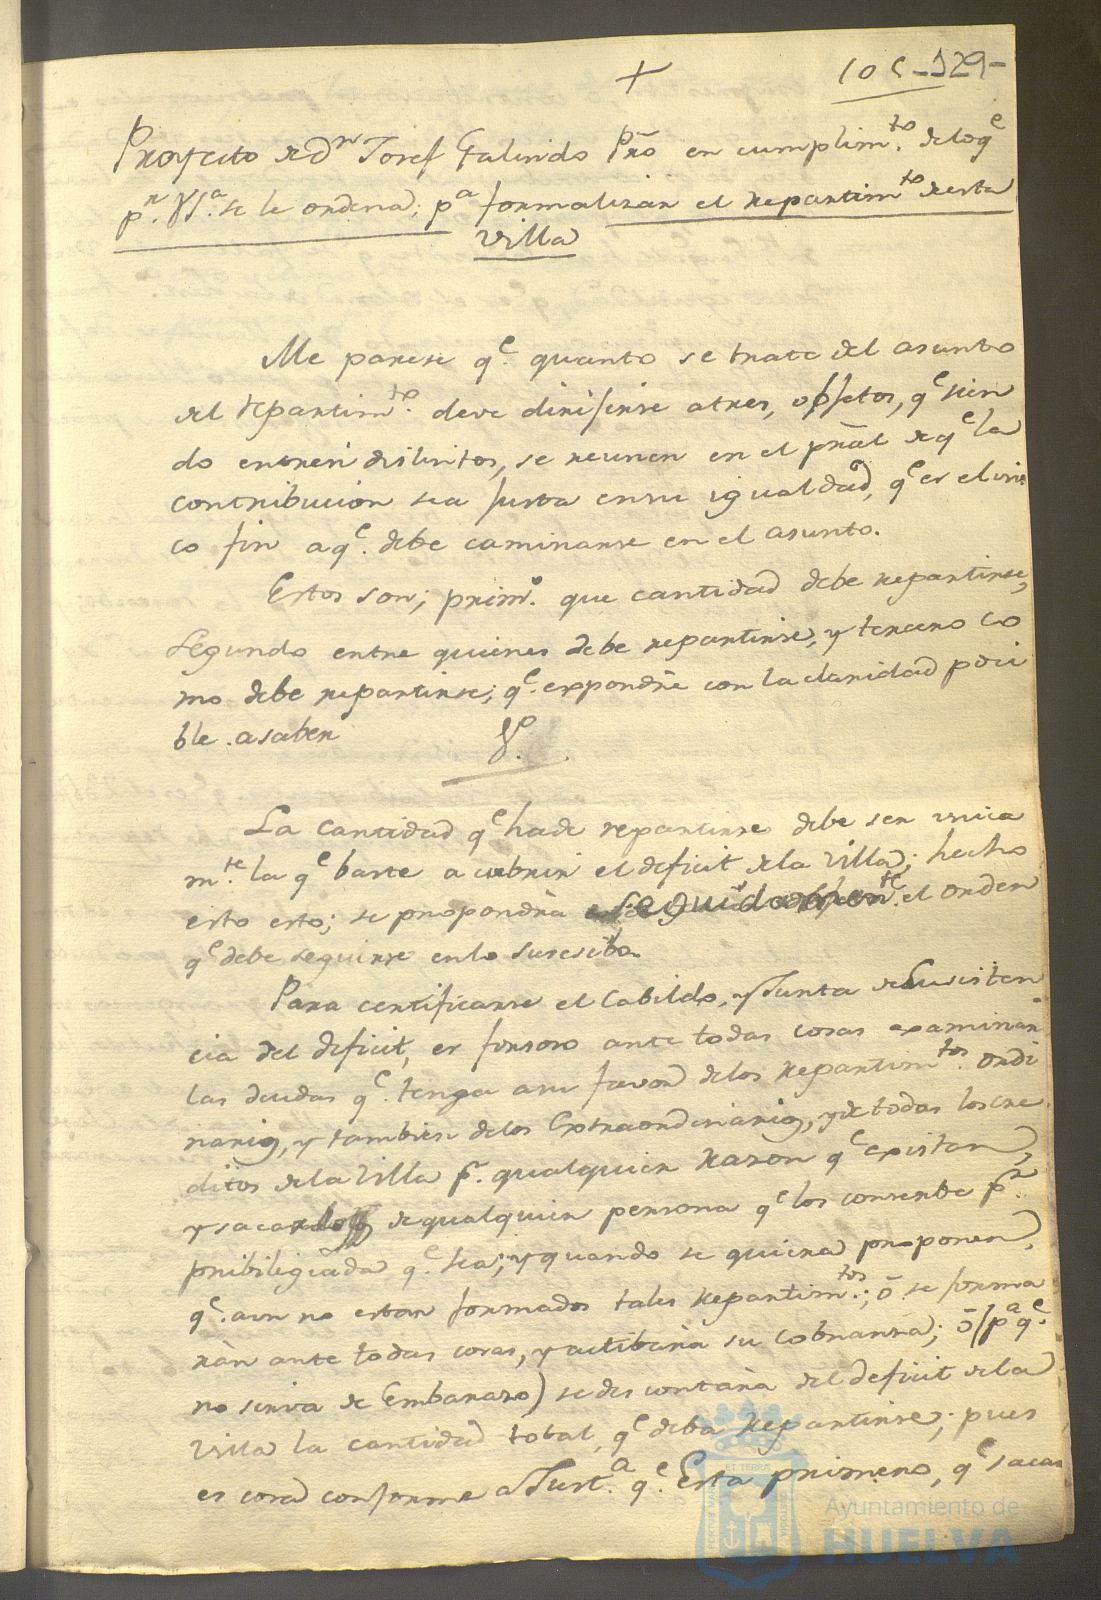 + 105 -129-
Proyecto de Dn Josef Galindo Pro en cumplimto. de loqe
pr. VSa. se le ordena; pa formalizar el repartimto de esta
villa
Me parese qe. quanto se trate del asunto
del repartimto. deve dirijirse atres, objetos, qe sien
do entresi distintos, se reunen en el pral de qe la
contribucion sea justa ensu igualdad, qe es el uni
co fin aqe. debe caminarse en el asunto.
Estos son; primo. que cantidad debe repartirse,
Segundo entre quienes debe repartirse, y tercero co
mo debe repartirse; qe. expondrè con la claridad posi
ble. asaber
La cantidad qe hade repartirse debe ser unica
mte. la qe baste a cubrir el deficit dela villa; hecho
esto esto; se propondrà seguidamente. el orden
qe debe seguirse enlo suscesibo.
Para certificarse el Cabildo, y Junta de Susisten
cia del deficit, es forsoso ante todas cosas examinar
las deudas qe. tenga asu favor delos repartimtos. ordi
narios, y tambien delos Extraordinarios, y de todos los cre
ditos dela Villa pr. qualquier razon qe existan,
y sacarlos de qualquier persona qe los conserbe pr.
pribilegiada qe. sea; y quando se quiera proponer,
qe. aun no estan formados tales repartimtos.; ò se forma
ràn ante todas cosas, y actibarà su cobransa; ò (pa qe.
no sirva de Embaraso) se descontarà del deficit dela
villa la cantidad total, qe deba repartirse; pues
es cosa conforme a Justa. qe. Esta primero, qe sacar
Ayuntamiento de
HUELVA